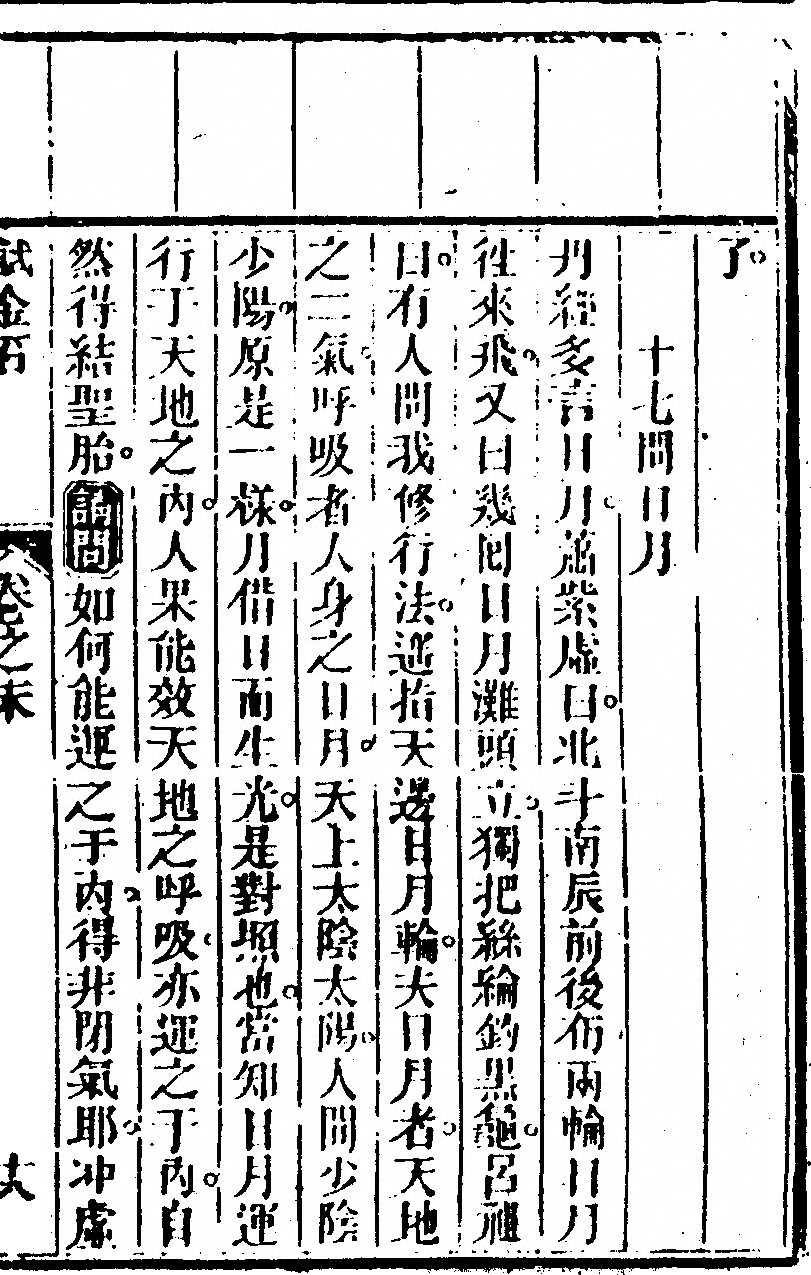 了。
十七問日月
丹經多言日月。蕭紫虛曰。北斗南辰前後布兩輪日月
徃來飛。又曰幾囘日月灘頭立。獨把絲綸釣黑龜。呂祖
曰。有人問我修行法。遥指天邊日月輪。夫日月者。天地
之二氣。呼吸者人身之日月。天上太陰太陽。人間少陰
少陽。原是一樣。月借日而生光。是對照也。當知日月運
行于天地之內。人果能效天地之呼吸。亦運之于內。自
然得結聖胎。翩問如何能運之于內。得非閉氣耶。冲虛
試金石 卷之末 十六